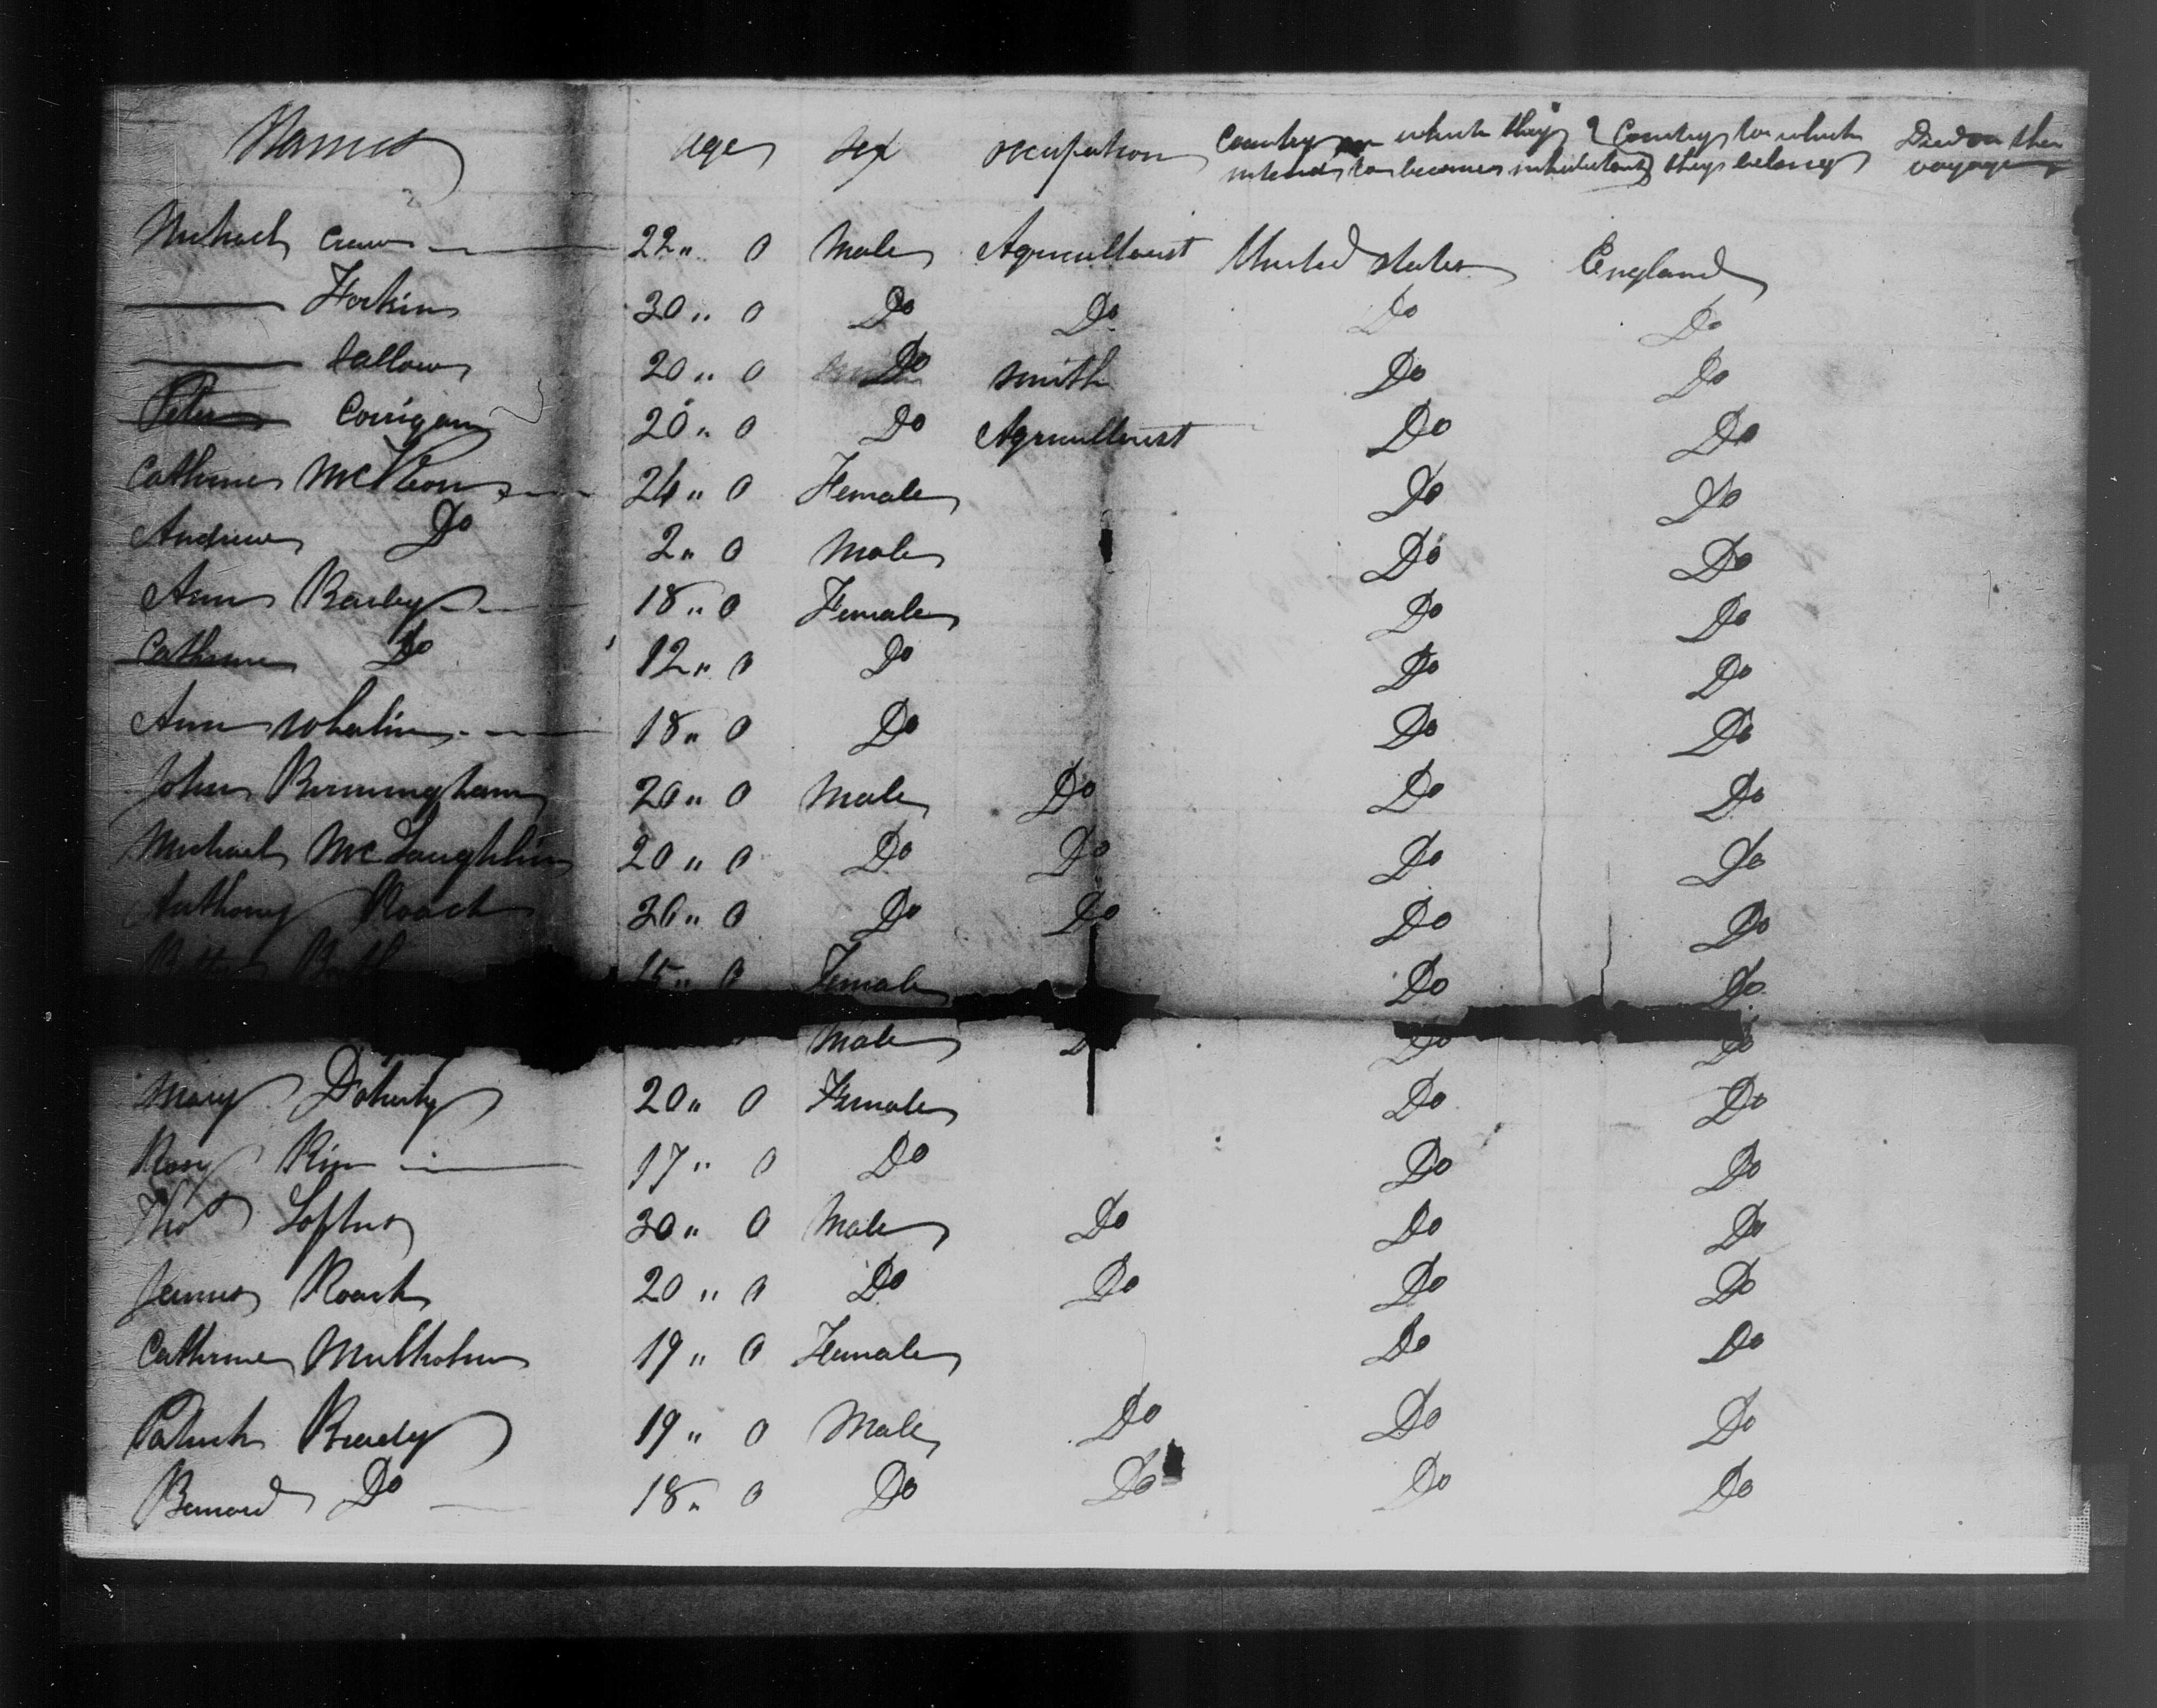 Names age sex occupation Country in which they intend to become inhabitants Country to which they belong Died on the voyage
Michael 22 " 0 Male Agriculturist United States England
30 " 0 Do Do Do Do
20 " 0 Do smith Do Do
Peter Corrigan 20 " 0 Do Agriculturist Do Do
Catherine 24 " 0 Female Do Do
Andrew Do 2 " 0 Male Do Do
Ann 18 " 0 Female Do Do
Catherine Do 12 " 0 Do Do Do
Ann Whalin 18 " 0 Do Do Do
John Birmingham 20 " 0 Male Do Do Do
Michael McLaughlin 20 " 0 Do Do Do Do
Anthony Roach " 0 Do Do Do Do
15 " 0 Female Do Do
Male Do Do
Mary Doherty 20 " 0 Female Do Do
Rosy 17 " 0 Do Do Do
Thos Loftus 30 " 0 Male Do Do Do
James Roach 20 " 0 Do Do Do Do
Catherine 19 " 0 Female Do Do
Patrick Brady 19 " 0 Male Do Do Do
Bernard Do 18 " 0 Do Do Do Do